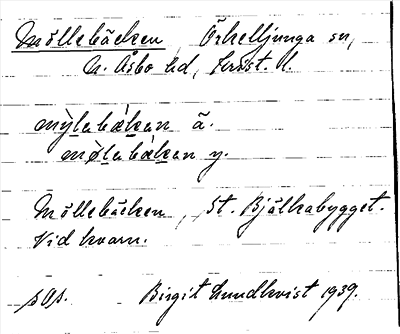 Möllebäcken, Örkelljunga sn,
N. Åsbo hd, Krist. l.
mỳlabǽkan ä.
mølabǽkan y.
Möllebäcken, St. Bjälkabygget.
Vid kvarn.
Birgit Lundkvist 1939.